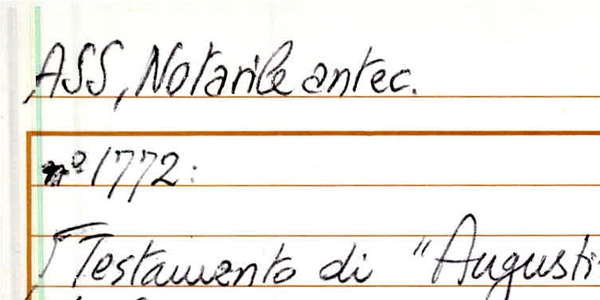 ASS, Notarile antec.
nº 1772:
Testamento di "Augusti